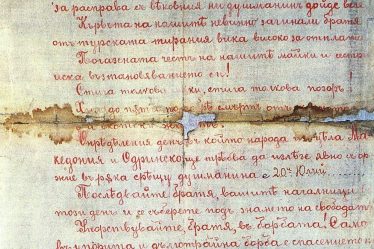 за расправа съ вѣковния ни душманинъ дойде ве
Кръвьта на нашитѣ невинно загинали братя
отъ турската тирания вика високо за отплата
Погазената честь на нашитѣ майки и сестр
иска възтановяванието си!
Стига толкова ки, стига толкова позоръ!
пѫт по смъртъ отъ
Опрѣдѣления день, въ който народа въ цѣла Ма
кедония и Одринско, ще трѣбва да излѣзе явно съ ор
жие въ рѫка срѣщу душманина е 20й Юлий
Послѣдвайте, братя, вашитѣ началници
този день и се съберете подъ знамето на свободат
Упорствувайте, братя, въ борбата! Само
въ упорита и дълготрайна борба спасението